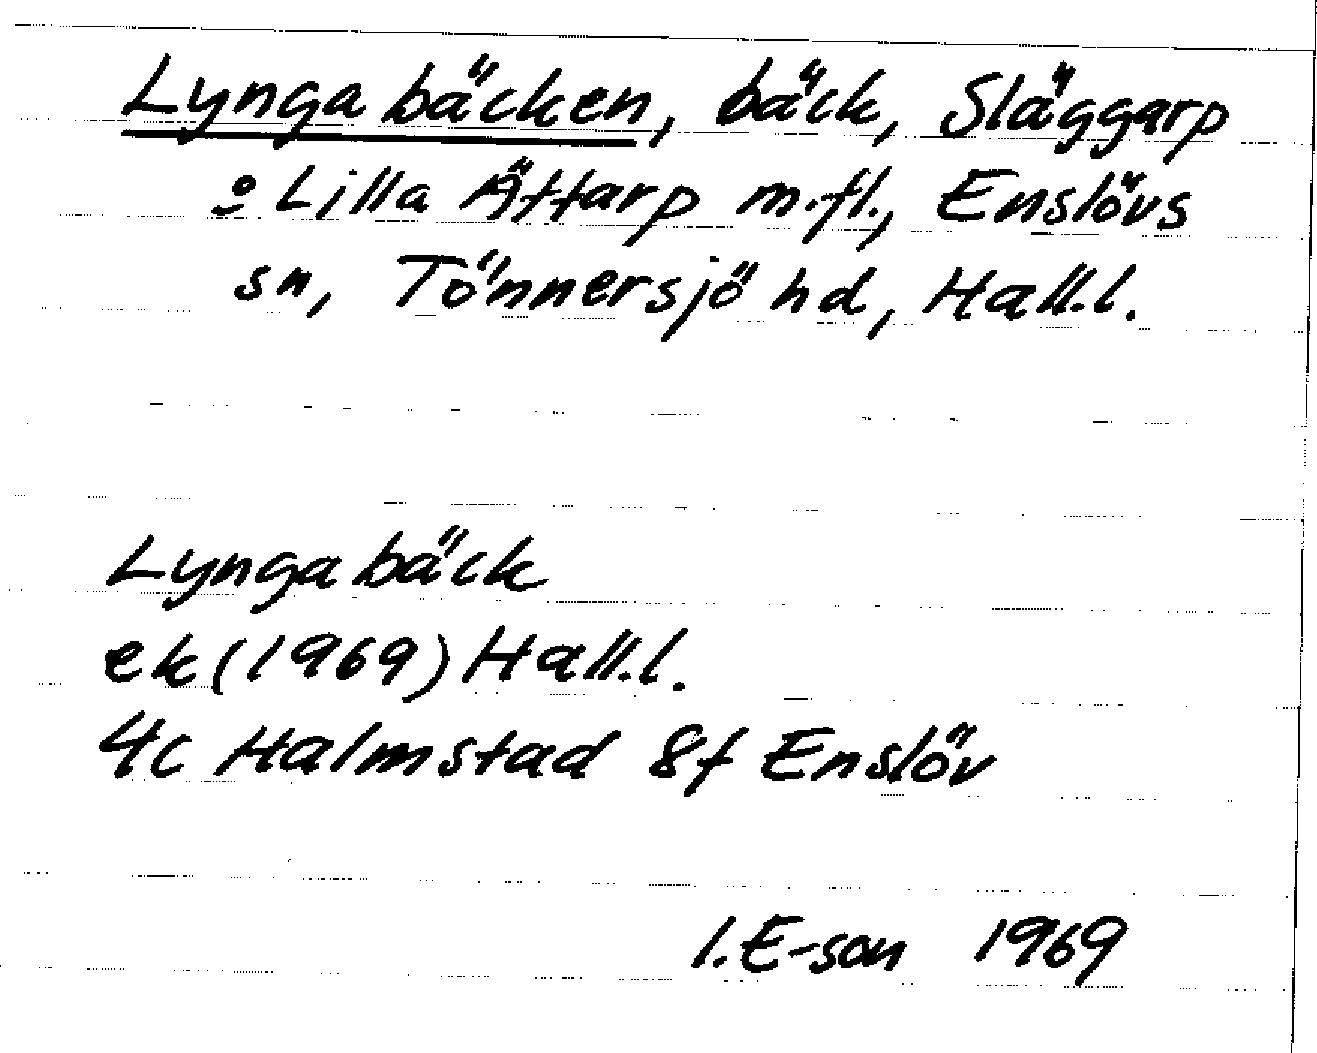 Lyngabäcken, bäck, Släggarp
o Lilla Ättarp m.fl., Enslövs
sn, Tönnersjö hd, Hall.l.
Lyngabäck
ek (1969) Hall.l.
4c Halmstad 8f Enslöv
I. E-son 1969